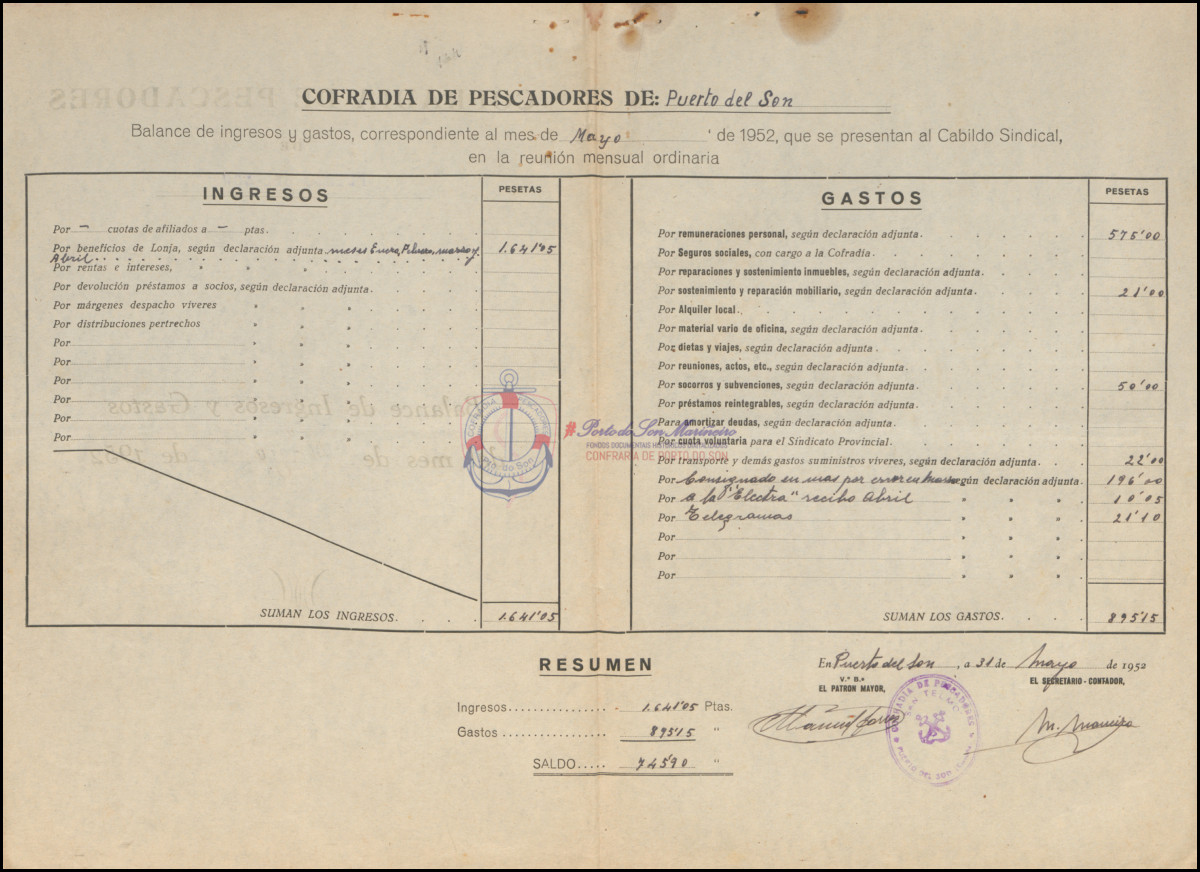 COFRADIA DE PESCADORES DE: Puerto del Son
Balance de ingresos y gastos, correspondiente al mes de Mayo de 1952, que se presentan al Cabildo Sindical,
en la reunión mensual ordinaria
INGRESOS
PESETAS
Por - cuotas de afiliados a - ptas.
Por beneficios de Lonja, según declaración adjunta meses Enero, Febrero, marzo y 1.641'05
Abril
Por rentas e intereses, " " "
Por devolución préstamos a socios, según declaración adjunta.
Por márgenes despacho viveres " " "
Por distribuciones pertrechos " " "
Por " " "
Por " " "
Por " " "
Por " " "
Por " " "
Por " " "
SUMAN LOS INGRESOS. 1.641'05
GASTOS
PESETAS
Por remuneraciones personal, según declaración adjunta. 575'00
Por Seguros sociales, con cargo a la Cofradía.
Por reparaciones y sostenimiento inmuebles, según declaración adjunta.
Por sostenimiento y reparación mobiliario, según declaración adjunta. 21'00
Por Alquiler local.
Por material vario de oficina, según declaración adjunta.
Por dietas y viajes, según declaración adjunta.
Por reuniones, actos, etc., según declaración adjunta.
Por socorros y subvenciones, según declaración adjunta. 50'00
Por préstamos reintegrables, según declaración adjunta.
Para amortizar deudas, según declaración adjunta.
Por cuota voluntaria para el Sindicato Provincial.
Por transporte y demás gastos suministros viveres, según declaración adjunta. 22'00
Por Consignado en mas por error en según declaración adjunta. 196'00
Por a la "Electra" recibo Abril " " " 10'05
Por Telegramas " " " 21'10
Por " " "
Por " " "
Por " " "
SUMAN LOS GASTOS. 895'15
COFRADIA PESCADORES
Porto do Son
#Porto do Son Marineiro
FONDOS DOCUMENTAIS HISTÓRICOS
CONFRARÍA DE PORTO DO SON
RESUMEN
Ingresos 1.641'05 Ptas.
Gastos 895'15 "
SALDO 745'90 "
En Puerto del Son, a 31 de Mayo de 1952
V.º B.º
EL PATRON MAYOR,
EL SECRETARIO - CONTADOR,
COFRADIA DE PESCADORES
SAN TELMO
PUERTO DEL SON